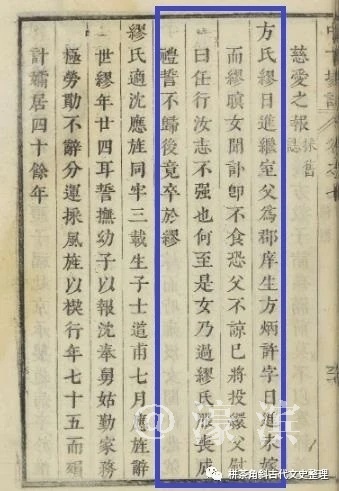 慈愛之報 採舊志
方氏繆日進繼室父爲郡庠生方炳許字日進未嫁
而繆殞女聞訃卽不食恐父不諒已將投繯父慰
曰任行汝志不强也何至是女乃過繆氏服喪成
禮誓不歸後竟卒於繆
繆氏適沈應旌同牢三載生子士道甫七月應旌辭
世繆年廿四耳誓撫幼子以報沈奉舅姑勤家務
極勞勩不辭分運採風旌以楔行年七十五而殞
計孀居四十餘年
@濠濱
栟茶角斜古代文史整理